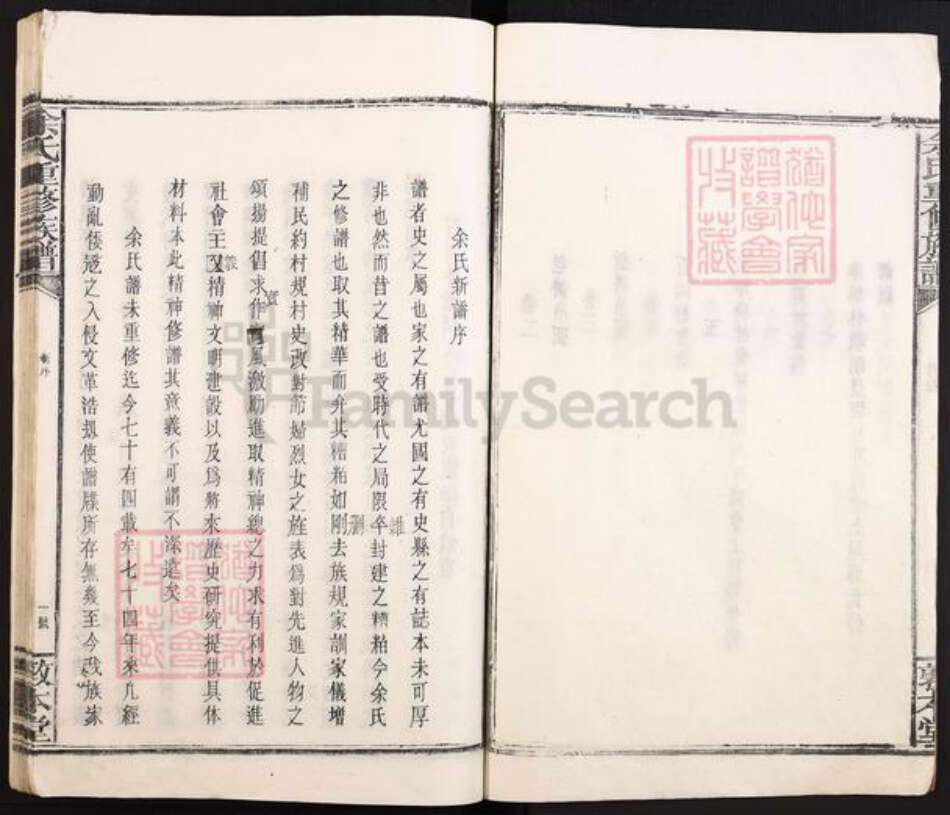 余氏重修族譜
敦本堂
猶他家
譜學會
收藏
余氏新譜序
譜者史之屬也家之有譜尤國之有史縣之有誌本未可厚
非也然而昔之譜也受時代之局限雜卒封建之糟粕今余氏
之修譜也取其精華而弃其糟粕如刪刚去族規家訓家儀增
補民約村規村史改對節婦烈女之旌表爲對先進人物之
頌揚提倡求作實風激励進取精神總之力求有利於促進
社會主义義精神文明建設以及爲將來歷史研究提供具体
材料本此精神修譜其意義不可謂不深遠矣
余氏譜未重修迄今七十有四載矣七十四年來几經
動亂倭寇之入侵文革浩劫使譜牒所存無㡬至今我族家
余氏重修族譜
卷序
一號
敦本堂
猶他家
譜學會
收藏
FamilySearch